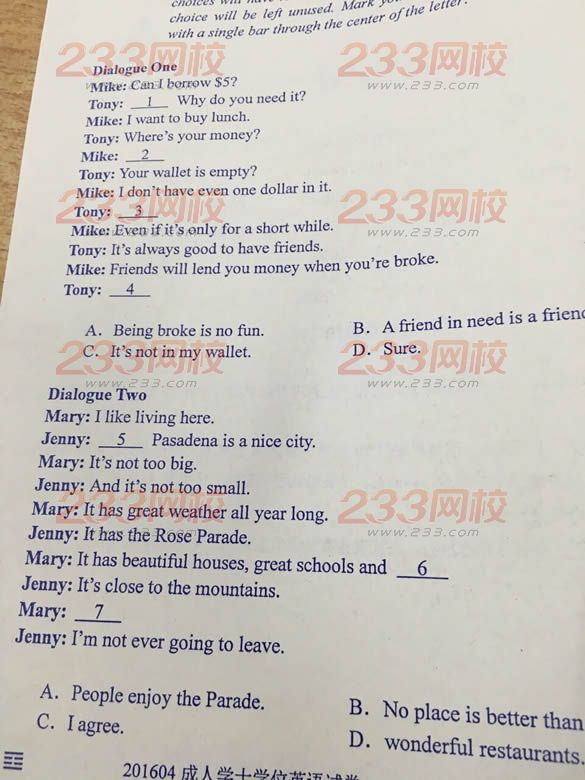 choice will be left unused. Mark
with a single bar through the center of the letter.
Dialogue One
Mike: Can I borrow $5?
Tony: 1 Why do you need it?
Mike: I want to buy lunch.
Tony: Where's your money?
Mike: 2
Tony: Your wallet is empty?
Mike: I don't have even one dollar in it.
Tony: 3
Mike: Even if it's only for a short while.
Tony: It's always good to have friends.
Mike: Friends will lend you money when you're broke.
Tony: 4
A. Being broke is no fun. B. A friend in need is a
C. It's not in my wallet. D. Sure.
Dialogue Two
Mary: I like living here.
Jenny: 5 Pasadena is a nice city.
Mary: It's not too big.
Jenny: And it's not too small.
Mary: It has great weather all year long.
Jenny: It has the Rose Parade.
Mary: It has beautiful houses, great schools and 6
Jenny: It's close to the mountains.
Mary: 7
Jenny: I'm not ever going to leave.
A. People enjoy the Parade. B. No place is better than
C. I agree. D. wonderful restaurants.
201604 成人学士学位英语试卷
233网校 233网校
www.233.com www.233.com
233网校 233网校
www.233.com www.233.com
233网校 233网校
www.233.com www.233.com
233网校 233网校
www.233.com www.233.com